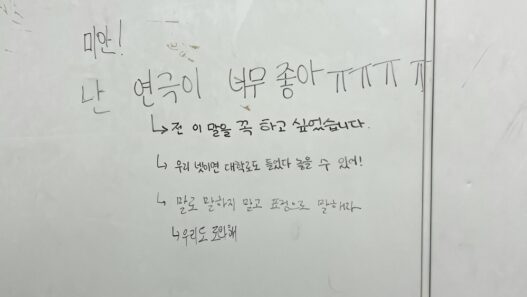 미안!
난 연극이 너무 좋아 ㅠㅠㅠ ㅠ
↳ 전 이 말을 꼭 하고 싶었습니다.
↳ 우리 넷이면 대학로도 들었다 놓을 수 있어!
↳ 말로 말하지 말고 표정으로 말해라
↳ 우리도 로안해